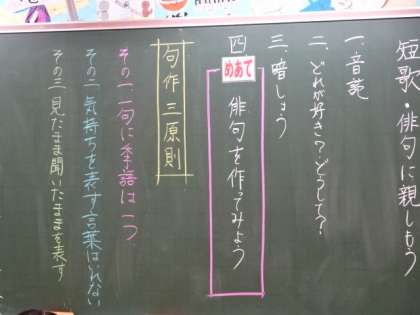 短歌・俳句に親しもう
一、音読
二、どれが好き?どうして?
三、暗しょう
四、
めあて
俳句を作ってみよう
句作三原則
その一、一句に季語は一つ
その二、気持ちを表す言葉はいれない
その三、見たまま聞いたままを表す